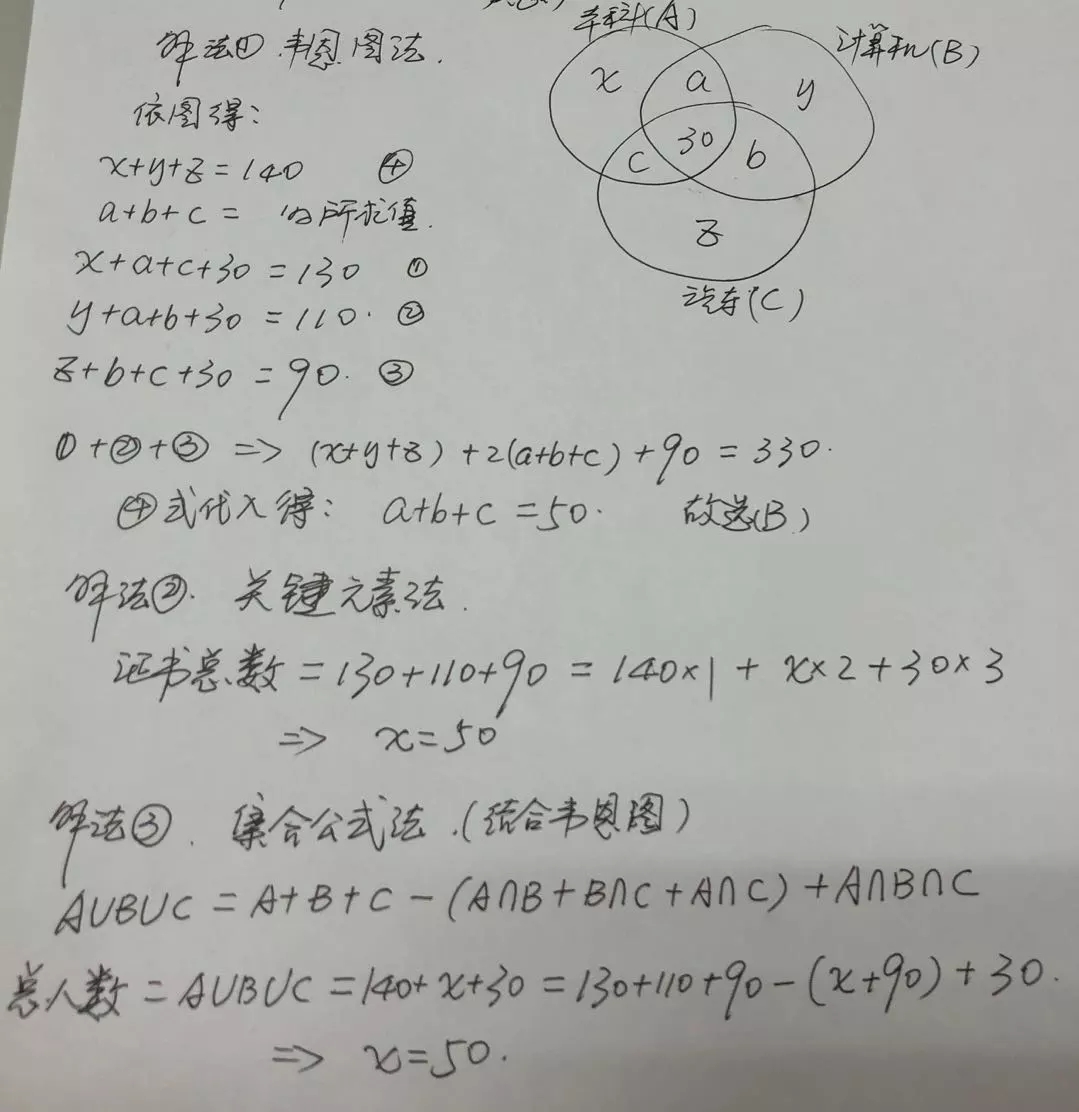 本科(A)
计算机(B)
汽车(C)
x
a
y
30
c
b
z
解法① 韦恩图法.
依图得:
x+y+z=140 ④
a+b+c= 为所求值.
x+a+c+30=130 ①
y+a+b+30=110. ②
z+b+c+30=90. ③
①+②+③ => (x+y+z)+2(a+b+c)+90=330.
④式代入得: a+b+c=50. 故选(B)
解法②. 关键元素法.
证书总数=130+110+90=140×1+x×2+30×3
=> x=50
解法③. 集合公式法.(结合韦恩图)
A∪B∪C=A+B+C-(A∩B+B∩C+A∩C)+A∩B∩C
总人数=A∪B∪C=140+x+30=130+110+90-(x+90)+30.
=> x=50.